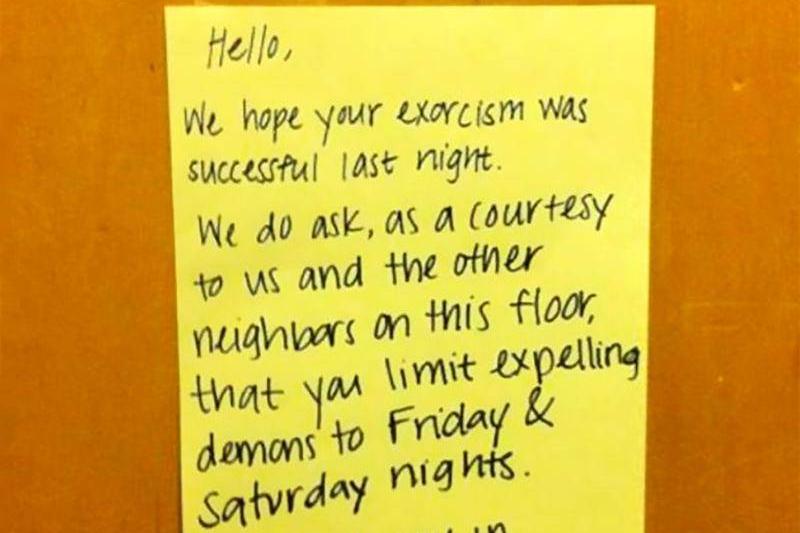 Hello,
We hope your exorcism was
successful last night.
We do ask, as a courtesy
to us and the other
neighbors on this floor,
that you limit expelling
demons to Friday &
Saturday nights.